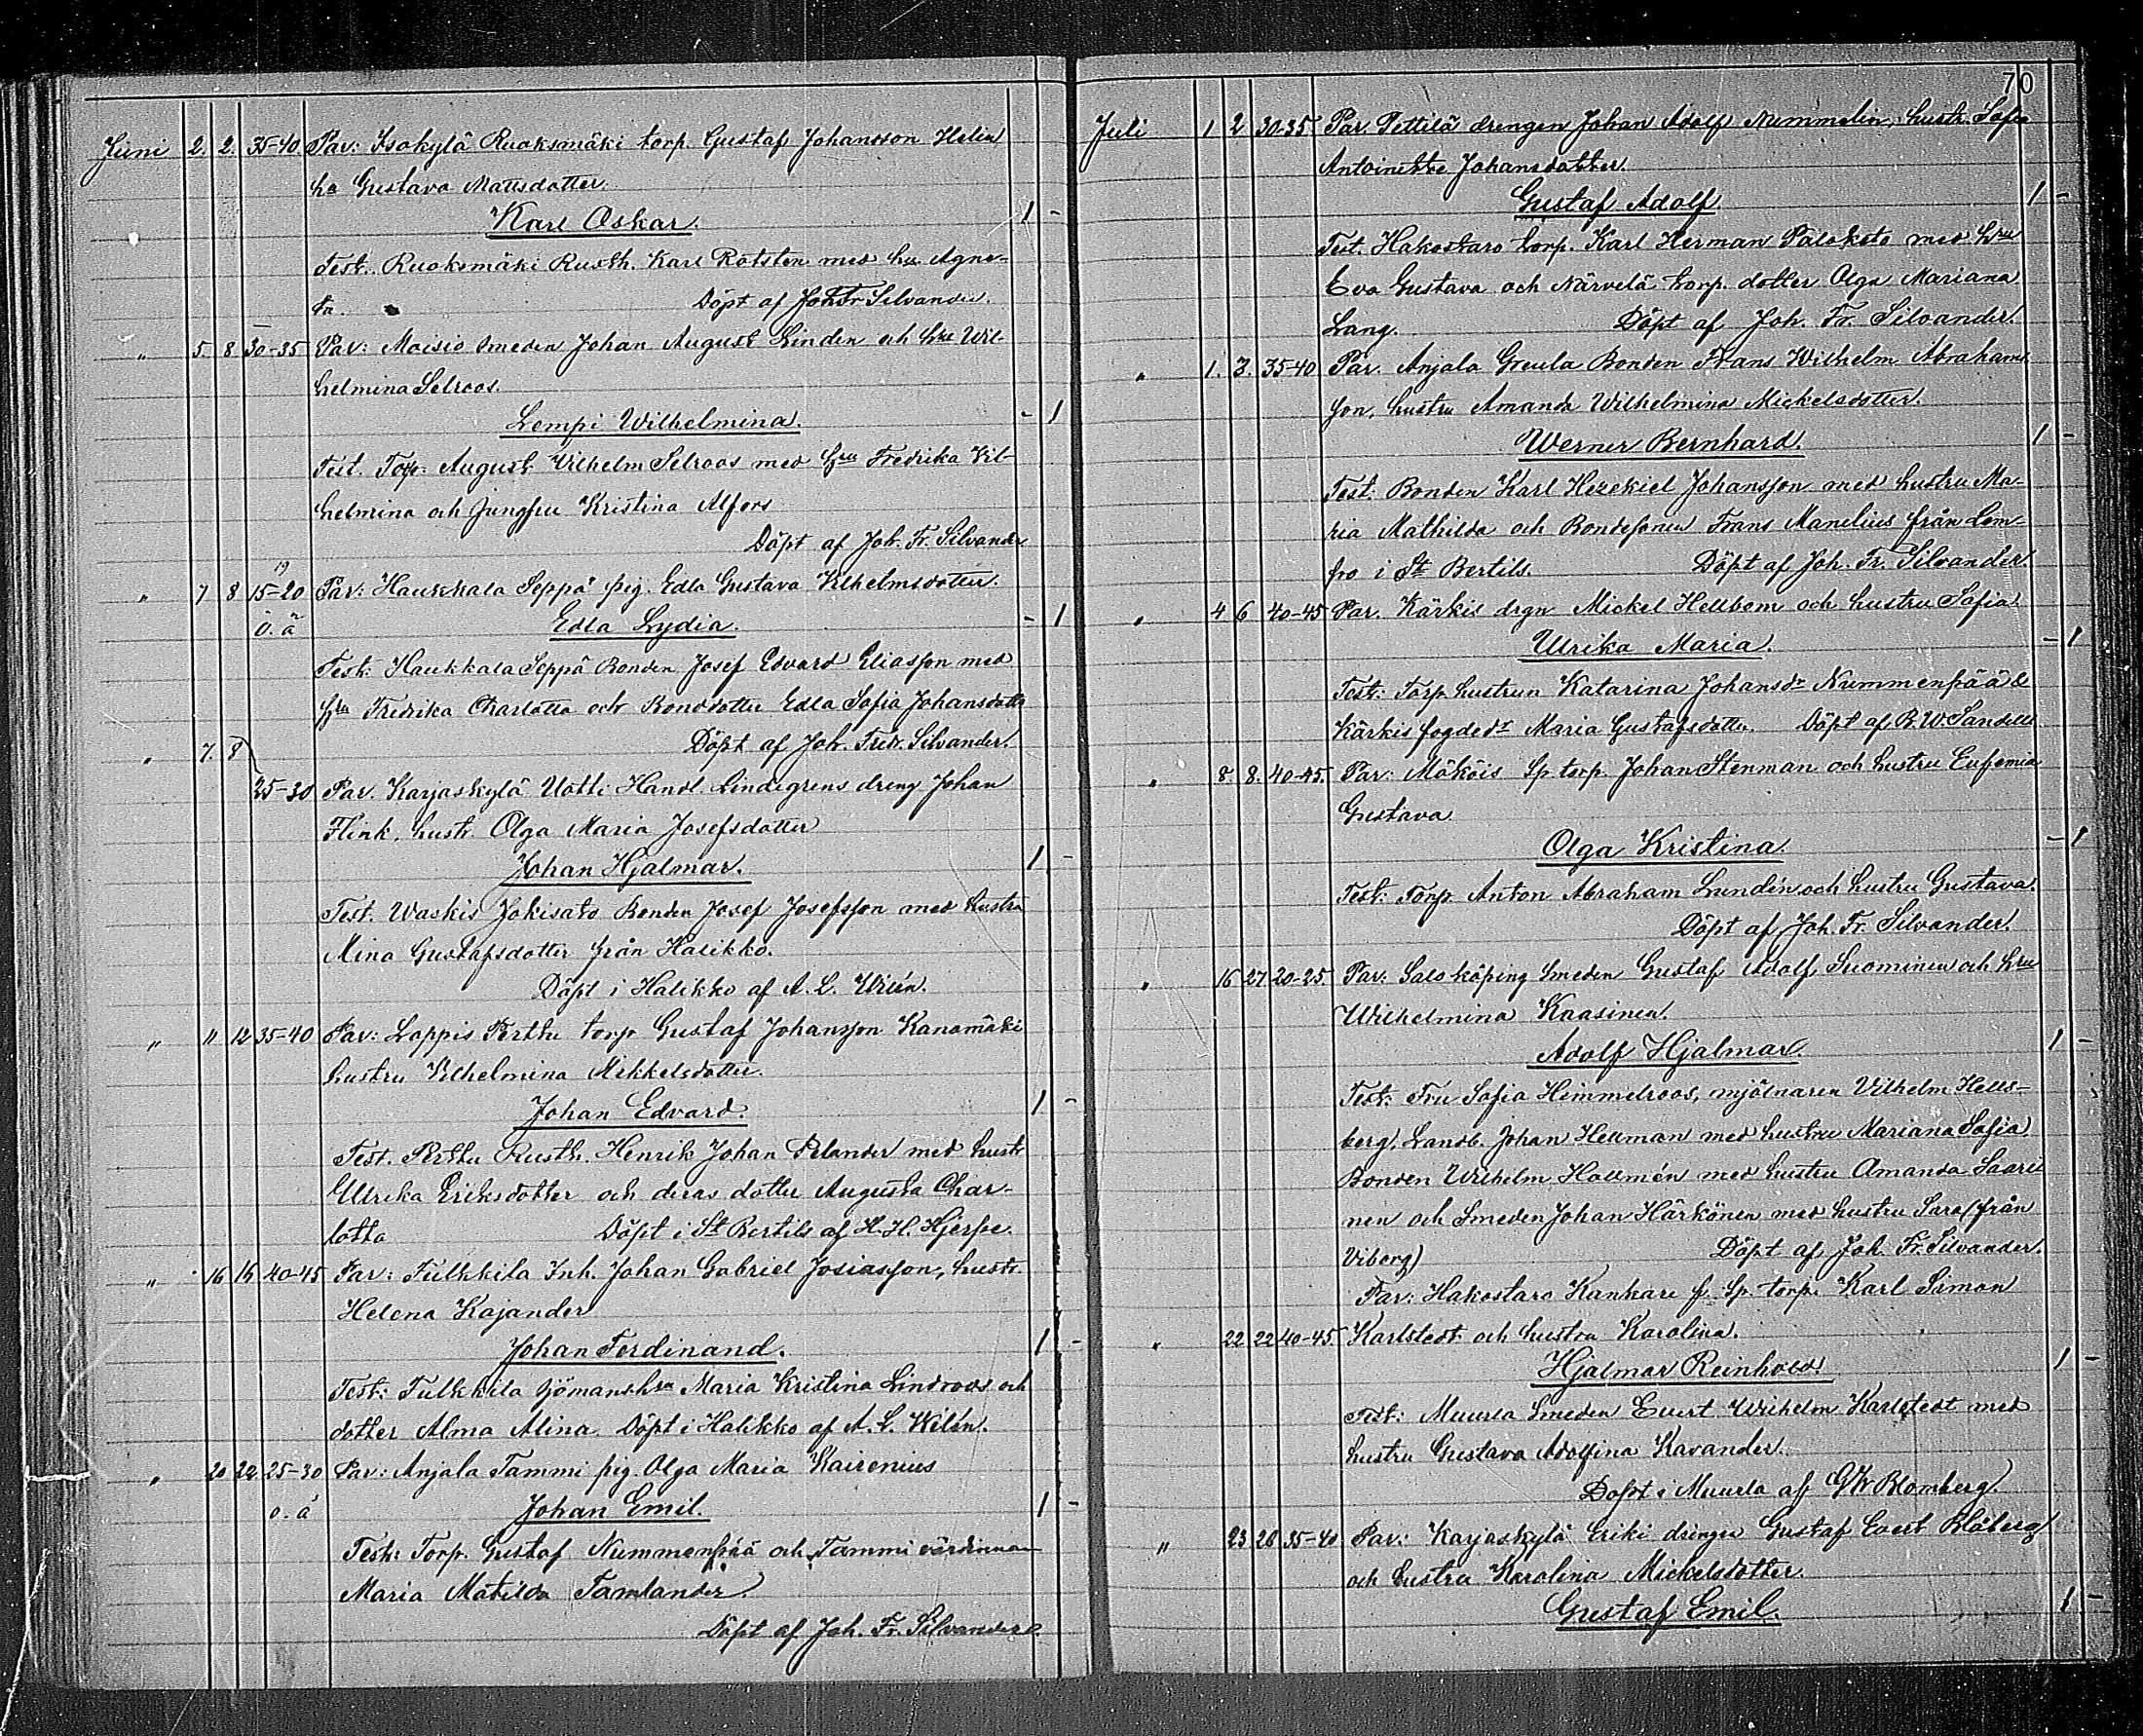 Juni 2. 2. 35-40 Par: Isokylä Ruoksmäki torp. Gustaf Johansson Helin
ha Gustava Mattsdotter.
Karl Oskar. 1 -
Test. Ruoksmäki Rusth. Karl Rotsten med hu Agne-
ta. Döpt af Joh Fr Silvander.
" 5 8 30-35 Par: Moisio Smeden Johan August Linden och hru Wil-
helmina Selroos.
Lempi Wilhelmina. - 1
Test. Torp. August Vilhelm Selroos med hru Fredrika Vil-
helmina och Jungfru Kristina Alfors
Döpt af Joh. Fr. Silvander
19
" 7 8 15-20 Par: Haukkala Seppä pig. Edla Gustava Vilhelmsdotter.
o. ä Edla Lydia. - 1
Test: Haukkala Seppä Bonden Josef Edvard Eliasson med
hru Fredrika Charlotta och Bonddotter Edla Sofia Johansdotter
" 7. 8 Döpt af Joh. Fredr. Silvander.
25-30 Par. Karjaskylä Uotti Handl. Lindegrens dreng Johan
Flink, hustr. Olga Maria Josefsdotter
Johan Hjalmar. 1 -
Test. Waskis Jokisato Bonden Josef Josefsson med hustru
Mina Gustafsdotter från Halikko.
Döpt i Halikko af A. L. Wilén.
" 11 12 35-40 Par: Loppis Perttu torp Gustaf Johansson Kanamäki
hustru Vilhelmina Mikkelsdotter.
Johan Edvard. 1 -
Test. Perttu Rusth. Henrik Johan Pelander med hustr
Ulrika Eriksdotter och deras dotter Augusta Char-
lotta Döpt i St Bertils af H. H. Hjerpe.
" 16 16 40-45 Par: Fulkkila Inh. Johan Gabriel Josiasson, hustr.
Helena Kajander
Johan Ferdinand. 1 -
Test: Fulkkila Sjömanshru Maria Kristina Lindroos och
dotter Alma Alina. Döpt i Halikko af A. L. Wilén.
" 20 22 25-30 Par: Anjala Tammi pig. Olga Maria Kairenius
o. ä Johan Emil. 1 -
Test: Torp. Gustaf Nummenpää och Tammi värdinnan
Maria Matilda Tamlander.
Döpt af Joh. Fr. Silvander.
70
Juli 1 2 30-35 Par. Pettilä drengen Johan Adolf Nummelin, hustr. Sofia
Antoinette Johansdotter.
Gustaf Adolf 1 -
Test. Hakostaro torp. Karl Herman Paloketo med hru
Eva Gustava och Närvelä torp. dotter Olga Mariana
Lang. Döpt af Joh. Fr. Silvander.
" 1. 2. 35-40 Par. Anjala Greula Bonden Frans Wilhelm Abrahams
son, hustru Amanda Wilhelmina Mickelsdotter.
Werner Bernhard. 1 -
Test: Bonden Karl Hezekiel Johansson med hustru Ma-
ria Mathilda och Bondesonen Frans Manelius från Lem-
fro i St Bertils. Döpt af Joh. Fr. Silvander.
" 4 6 40-45 Par. Kärkis drgn Mickel Hellbom och hustru Sofia
Ulrika Maria. - 1
Test: Torp. hustrun Katarina Johansdr Nummenpää &
Kärkis fogdedr Maria Gustafsdotter. Döpt af B. W. Sandell
" 8. 8. 40-45. Par: Mököis Sp. torp. Johan Stenman och hustru Eufemia
Gustava
Olga Kristina - 1
Test: Torp. Anton Abraham Lundén och hustru Gustava.
Döpt af Joh. Fr. Silvander.
" 16 27 20-25. Par: Salo köping Smeden Gustaf Adolf Suominen och hru
Wilhelmina Kaasinen.
Adolf Hjalmar. 1 -
Test: Fru Sofia Himmelroos, mjölnaren Vilhelm Hells-
berg, Landb. Johan Hellman med hustru Mariana Sofia,
Bonden Wilhelm Hallmén med hustru Amanda Saari
nen och Smeden Johan Härkönen med hustru Sara (från
Viborg) Döpt af Joh. Fr. Silvander.
Par: Hakostaro Kankare f. Sp. torp. Karl Simon
" 22 22 40-45. Karlstedt och hustru Karolina.
Hjalmar Reinhold. 1 -
Test: Muurla Smeden Evert Wilhelm Karlstedt med
hustru Gustava Adolfina Kavander.
Döpt i Muurla af G W Blomberg.
" 23 26 35-40 Par: Karjaskylä Eriki drengen Gustaf Evert Blåberg
och hustru Karolina Mickelsdotter.
Gustaf Emil. 1 -